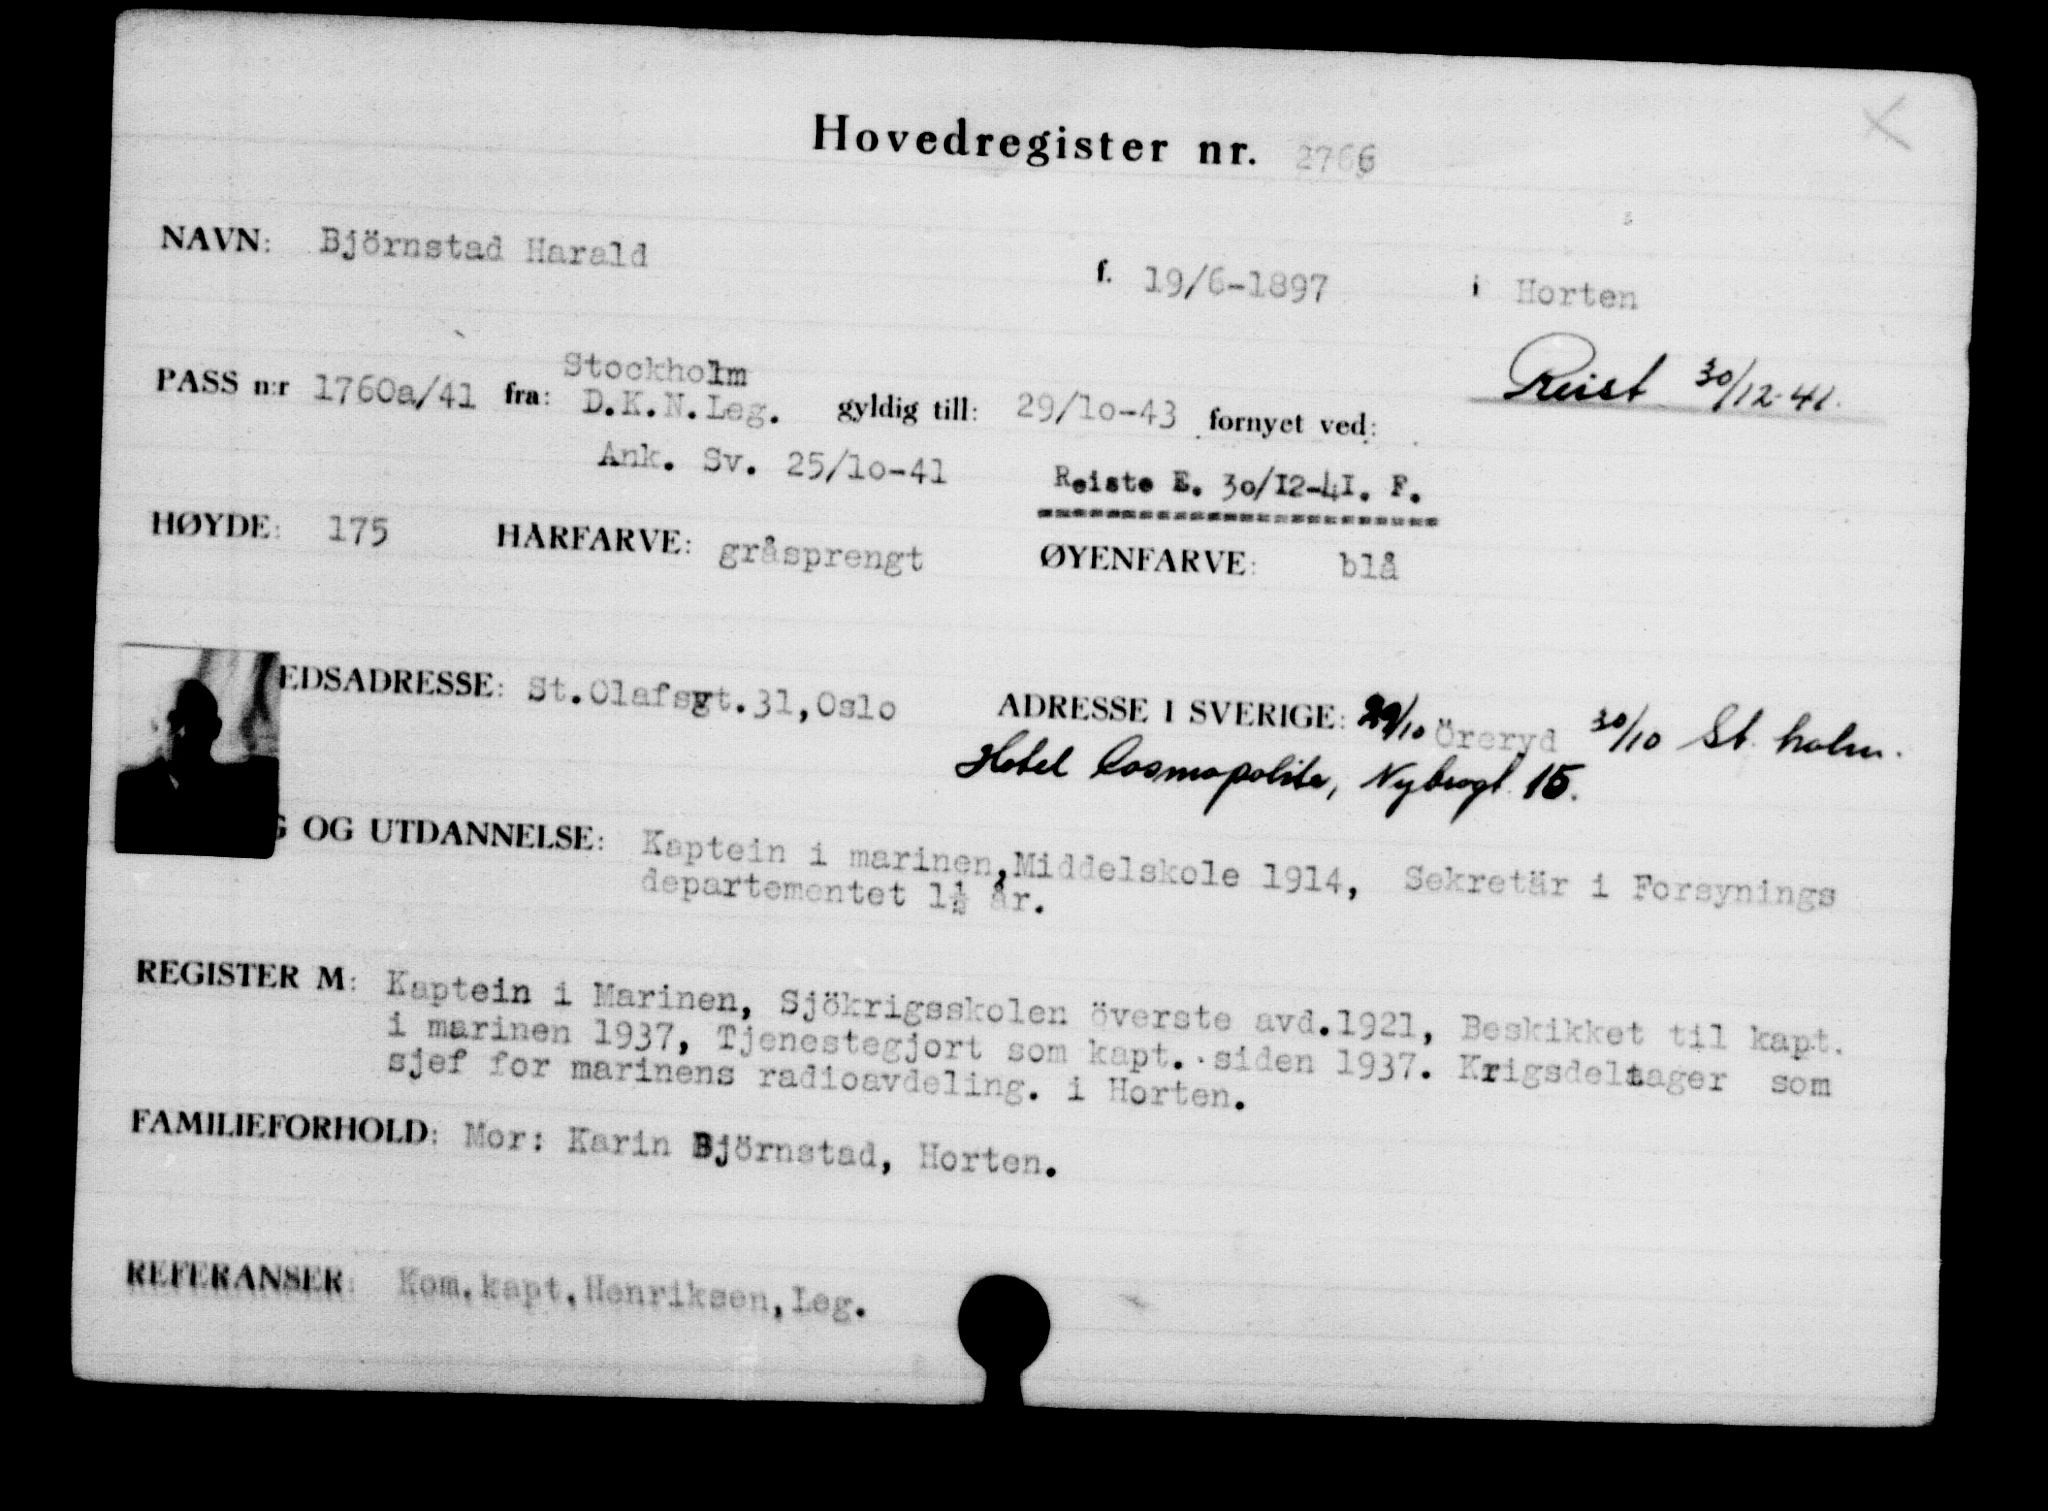 Hovedregister nr. 2766
NAVN: Björnstad Harald f. 19/6-1897 i Horten
Reist 30/12-41.
Stockholm
PASS n:r 1760a/41 fra: D.K.N.Leg. gyldig till: 29/10-43 fornyet ved:
Ank. Sv. 25/10-41 Reiste E. 30/12-41. F.
HØYDE: 175 HÅRFARVE: gråsprengt ØYENFARVE: blå
EDSADRESSE: St.Olafsgt.31,Oslo ADRESSE I SVERIGE: 29/10 Öreryd 30/10 St.holm.
Hotel Cosmopolite, Nybrogt. 15.
G OG UTDANNELSE: Kaptein i marinen,Middelskole 1914, Sekretär i Forsynings
departementet 1½ år.
REGISTER M: Kaptein i Marinen, Sjökrigsskolen överste avd.1921, Beskikket til kapt.
i marinen 1937, Tjenestegjort som kapt. siden 1937. Krigsdeltager som
sjef for marinens radioavdeling. i Horten.
FAMILIEFORHOLD: Mor: Karin Björnstad, Horten.
REFERANSER: Kom.kapt.Henriksen,Leg.